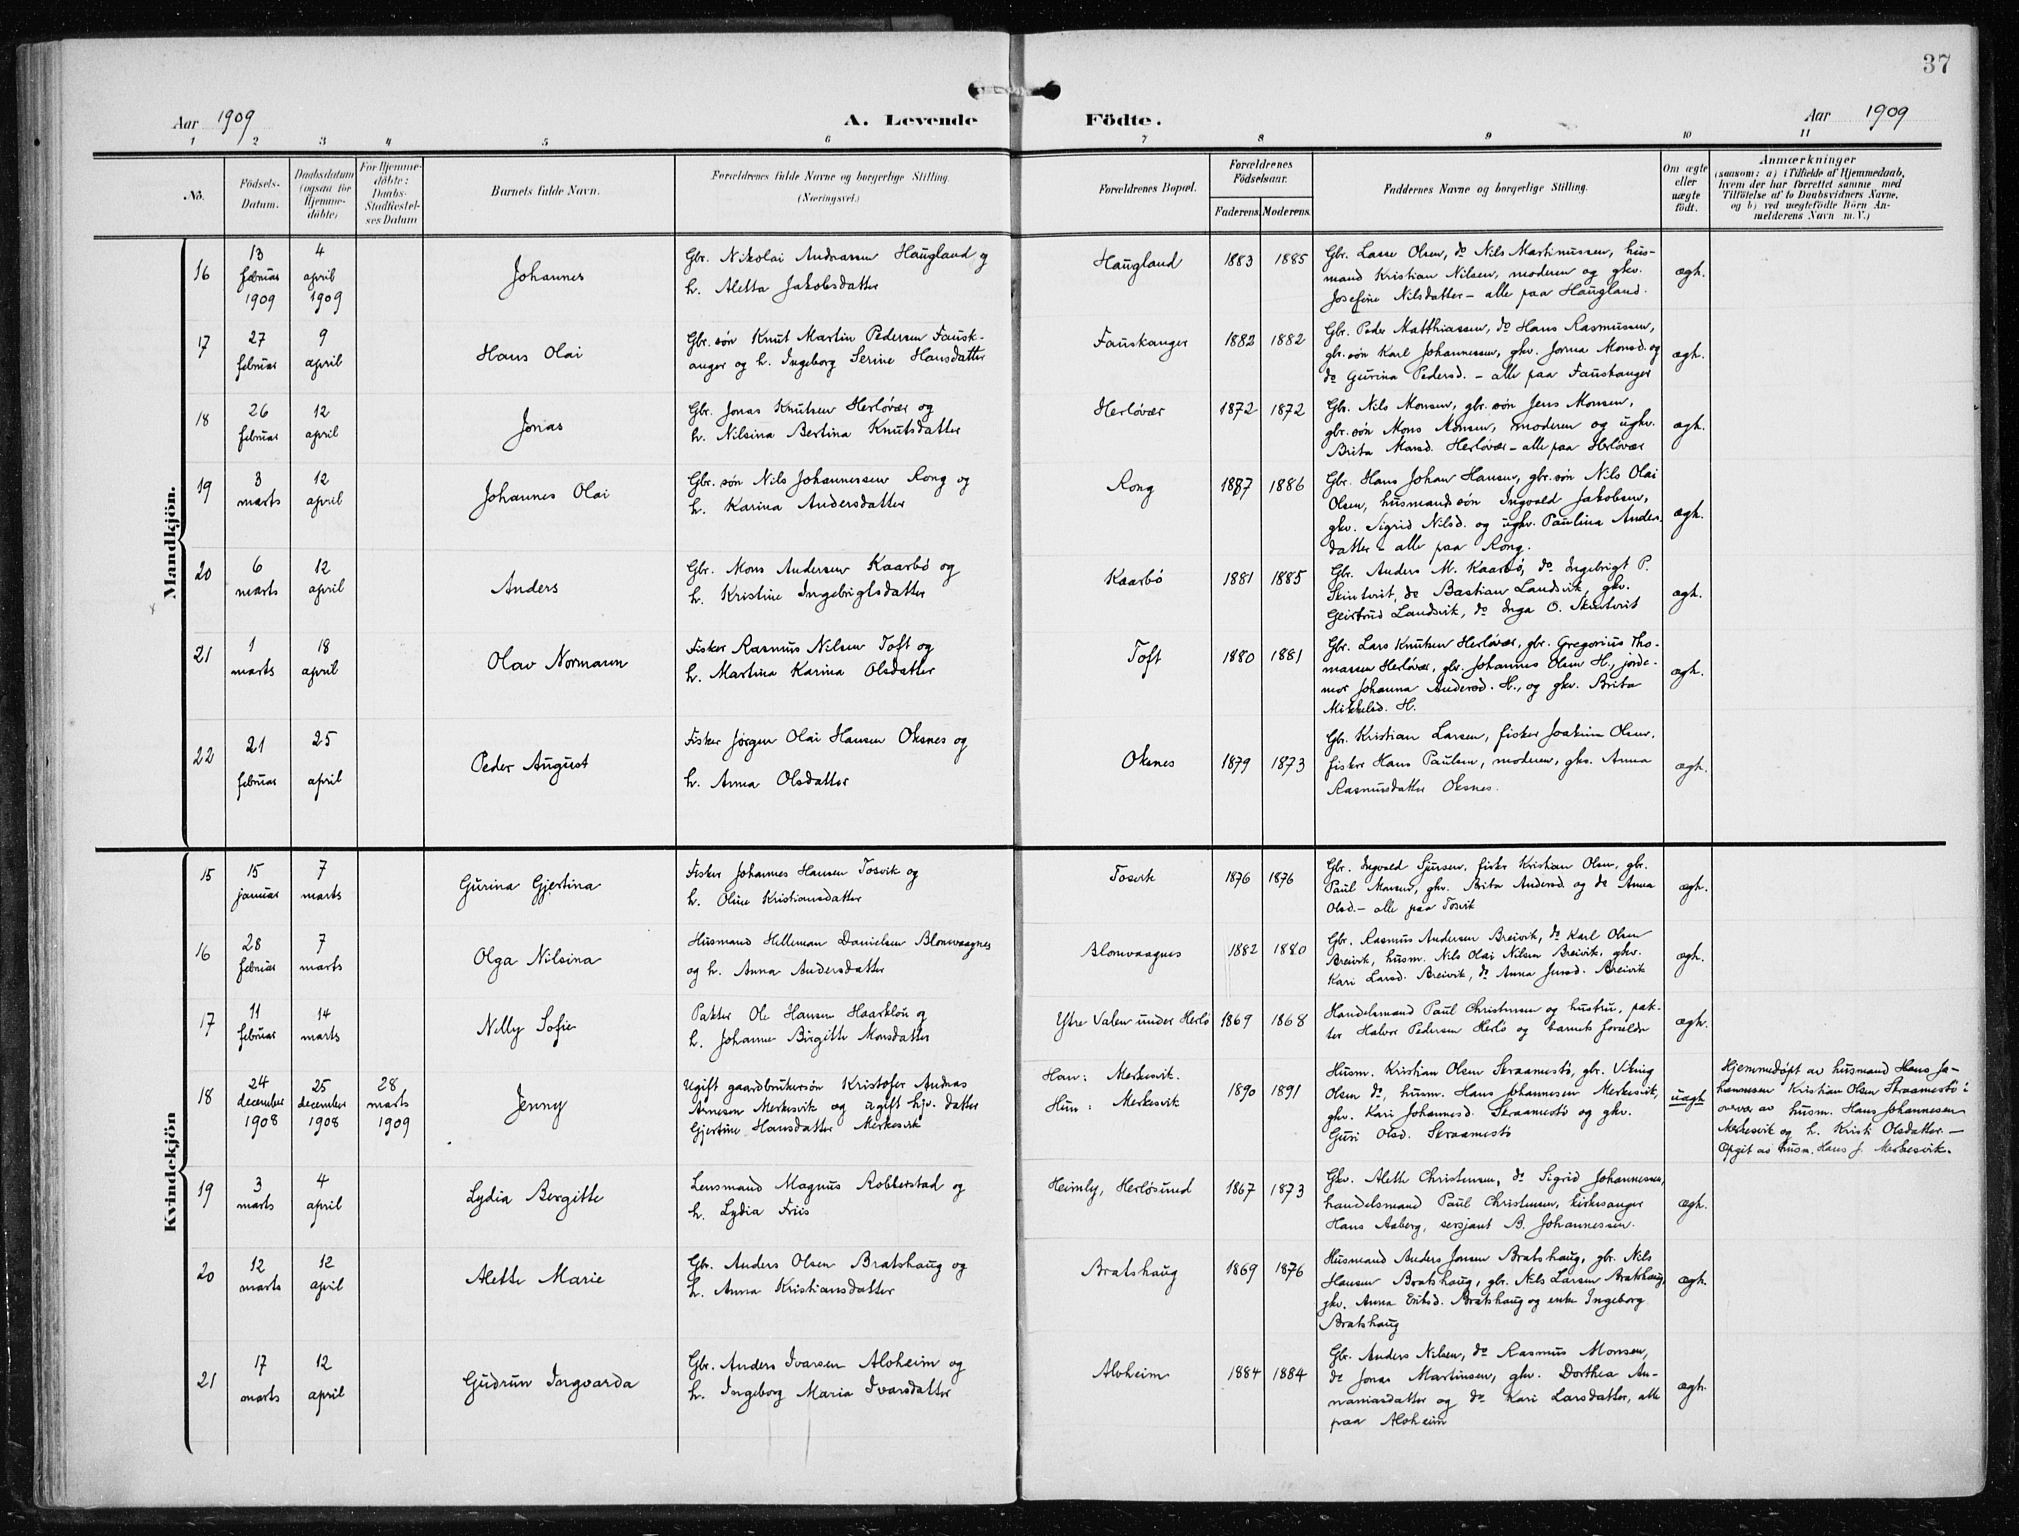 37
Aar 1909
A. Levende Födte.
Aar 1909
1 2 3 4 5 6 7 8 9 10 11
No.
Födsels-
Datum.
Daabsdatum
(ogsaa for
Hjemme-
döbte)
For Hjemme-
döbte:
Daabs-
Stadfæstel-
ses Datum
Barnets fulde Navn.
Forældrenes fulde Navne og borgerlige Stilling.
(Næringsvei.)
Forældrenes Bopæl.
Forældrenes
Födselsaar.
Faderens. Moderens.
Faddernes Navne og borgerlige Stilling.
Om ægte
eller
uægte
födt.
Anmærkninger
(saasom: a) i Tilfælde af Hjemmedaab,
hvem der har forrettet samme, med
Tilföielse af to Daabsvidners Navne,
og b) ved uægtefödte Börn An-
melderens Navn m. V.)
Mandkjön.
16
13
februar
1909
4
april
1909
Johannes
Gbr. Nikolai Andreassen Haugland og
h. Aletta Jakobsdatter
Haugland
1883 1885
Gbr. Lasse Olsen, do Nils Martinussen, hus-
mand Kristian Nilsen, moderen og gkv.
Josefine Nilsdatter – alle paa Haugland.
ægh.
17
27
februar
9
april
Hans Olai
Gbr. søn Knut Martin Pedersen Fausk-
anger og h. Ingeborg Serine Hansdatter
Fauskanger
1882 1882
Gbr. Peder Matthiassen, do Hans Rasmussen,
gbr. søn Karl Johannessen, gkv. Jorina Monsd. og
do Gurina Pedersd. – alle paa Fauskanger
ægh.
18
26
februar
12
april
Jonas
Gbr. Jonas Knutsen Herløvær og
h. Nilsina Bertina Knutsdatter
Herløvær
1872 1872
Gbr. Nils Monsen, gbr. søn Jens Monsen,
gbr. søn Mons Monsen, moderen og ugkv.
Brita Monsd. Herløvær – alle paa Herløvær
ægh.
19
3
marts
12
april
Johannes Olai
Gbr. søn Nils Johannessen Rong og
h. Karina Andersdatter
Rong
1887 1886
Gbr. Hans Johan Hansen, gbr. søn Nils Olai
Olsen, husmandssøn Ingvald Jakobsen,
gkv. Sigrid Nilsd. og ugkv. Paulina Anders-
datter – alle paa Rong.
ægh.
20
6
marts
12
april
Anders
Gbr. Mons Andersen Kaarbø og
h. Kristine Ingebrigtsdatter
Kaarbø
1881 1885
Gbr. Anders M. Kaarbø, do Ingebrigt P.
Skintveit, do Bastian Landsvik, gkv.
Geirtrud Landsvik, do Inga O. Skintveit
ægh.
21
1
marts
18
april
Olav Normann
Fisker Rasmus Nilsen Toft og
h. Martina Karina Olsdatter
Toft
1880 1881
Gbr. Lars Knutsen Herløvær, gbr. Gregorius Tho-
massen Herløvær, gbr. Johannes Olsen H., jorde-
mor Johanna Andersd. H., og gkv. Brita
Mikkelsd. H.
ægh.
22
21
februar
25
april
Peder August
Fisker Jørgen Olai Hansen Oksnes og
h. Anna Olsdatter
Oksnes
1879 1873
Gbr. Kristian Larsen, fisker Joakim Olsen,
fisker Hans Paulsen, moderen, gkv. Anna
Rasmusdatter Oksnes.
ægh.
Kvindekjön
15
15
januar
7
marts
Gurina Gjertina
Fisker Johannes Hansen Tosvik og
h. Oline Kristiansdatter
Tosvik
1876 1876
Gbr. Ingvald Sjursen, fisker Kristian Olsen, gbr.
Paul Monsen, gkv. Brita Andersd. og do Anna
Olsd. – alle paa Tosvik
ægh.
16
28
februar
7
marts
Olga Nilsina
Husmand Helleman Danielsen Blomvaagnes
og h. Anna Andersdatter
Blomvaagnes
1882 1880
Gbr. Rasmus Andersen Breivik, do Karl Olsen
Breivik, husm. Nils Olai Nilsen Breivik, gkv.
Kari Larsd. Breivik, do Anna Jensd. Breivik
ægh.
17
11
februar
14
marts
Nelly Sofie
Pakter Ole Hansen Haarklou og
h. Johanne Birgitte Monsdatter
Ytre Valen under Herlø
1869 1868
Handelsmand Paul Christensen og hustru, pak-
ter Halvor Pedersen Herlø og barnets forældre
ægh.
18
24
december
1908
25
december
1908
28
marts
1909
Jenny
Ugift gaardbrukersøn Kristofer Andreas
Arnesen Merkesvik og ugift hjv. datter
Gjertine Hansdatter Merkesvik
Han: Merkesvik.
Hun: Merkesvik
1890 1891
Husm. Kristian Olsen Skraamestø, gbr. Viking
Olsen do, husm. Hans Johannesen Merkesvik,
gkv. Kari Johannesd. Skraamestø og gkv.
Guri Olsd. Skraamestø
uægh.
Hjemmedøpt av husmand Hans Jo-
hannessen Kristian Olsen Skraamestø i
overvær av husm. Hans Johannessen
Merkesvik og h. Kristi Olsdatter. –
Opgit av husm. Hans J. Merkesvik.
19
3
marts
4
april
Lydia Bergitte
Lensmand Magnus Robberstad og
h. Lydia Friis
Heimly, Herløsund
1867 1873
Gkv. Alette Christensen, do Sigrid Johannessen,
handelsmand Paul Christensen, kirkesanger
Hans Aaberg, sersjant B. Johannessen.
ægh.
20
12
marts
12
april
Alette Marie
Gbr. Anders Olsen Bratshaug og
h. Anna Kristiansdatter
Bratshaug
1869 1876
Husmand Anders Jonsen Bratshaug, gbr. Nils
Hansen Bratshaug, gbr. Nils Larsen Bratshaug,
gkv. Anna Eriksd. Bratshaug og enke Ingeborg
Bratshaug
ægh.
21
17
marts
12
april
Gudrun Ingvarda
Gbr. Anders Ivarsen Alvheim og
h. Ingeborg Maria Ivarsdatter
Alvheim
1884 1884
Gbr. Anders Nilsen, do Rasmus Monsen,
do Jonas Martinsen, gkv. Dorthea An-
naniasdatter og do Kari Larsdatter, alle
paa Alvheim
ægh.